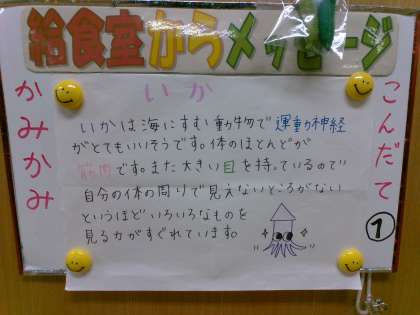 給食室からメッセージ
かみかみ
こんだて
①
いか
いかは海にすむ動物で運動神経
がとてもいいそうです。体のほとんどが
筋肉です。また大きい目を持っているので
自分の体の周りで見えないところがない
というほどいろいろなものを
見る力がすぐれています。